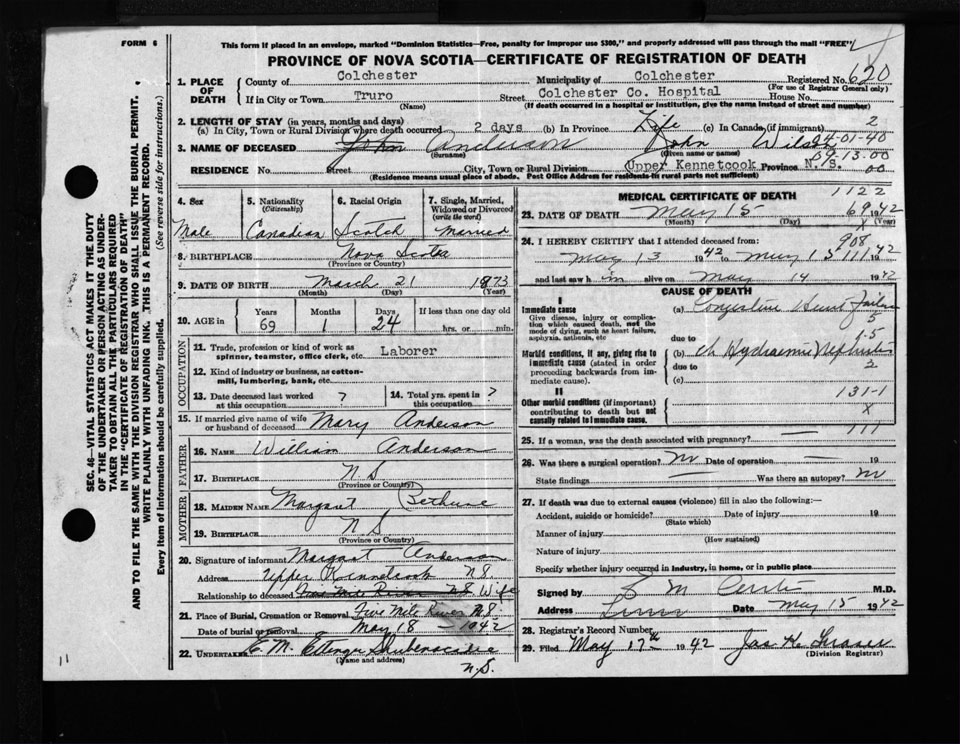 FORM 6
This form if placed in an envelope, marked "Dominion Statistics—Free, penalty for improper use $300," and properly addressed will pass through the mail "FREE"
PROVINCE OF NOVA SCOTIA—CERTIFICATE OF REGISTRATION OF DEATH
1. PLACE OF DEATH County of Colchester Municipality of Colchester Registered No. 620
(For use of Registrar General only)
If in City or Town Truro Street Colchester Co. Hospital House No.
(Name) (If death occurred in a hospital or institution, give the name instead of street and number)
2. LENGTH OF STAY (in years, months and days)
(a) In City, Town or Rural Division where death occurred 2 days (b) In Province Life (c) In Canada (if immigrant) 2
3. NAME OF DECEASED John Anderson John Wilson 24-01-40
(Surname) (Given name or names) 04-13.00
RESIDENCE No. Street City, Town or Rural Division Upper Kennetcook Province N. S. 00
(Residence means usual place of abode. Post Office Address for residents in rural parts not sufficient)
4. Sex
Male
5. Nationality (Citizenship)
Canadian
6. Racial Origin
Scotch
7. Single, Married, Widowed or Divorced (write the word)
Married
8. BIRTHPLACE Nova Scotia
(Province or Country)
9. DATE OF BIRTH March 21 1873
(Month) (Day) (Year)
10. AGE in Years Months Days If less than one day old
69 1 24 hrs. or min.
OCCUPATION
11. Trade, profession or kind of work as spinner, teamster, office clerk, etc. Laborer
12. Kind of industry or business, as cotton-mill, lumbering, bank, etc.
13. Date deceased last worked at this occupation ? 14. Total yrs. spent in this occupation ?
15. If married give name of wife or husband of deceased Mary Anderson
FATHER
16. NAME William Anderson
17. BIRTHPLACE N.S
(Province or Country)
MOTHER
18. MAIDEN NAME Margaret Bethune
19. BIRTHPLACE N.S
(Province or Country)
20. Signature of informant Margart Anderson
Address Upper Kennetcook N.S.
Relationship to deceased Five Mile River N S Wife
21. Place of Burial, Cremation or Removal Five Mile River N.S.
Date of burial or removal May 18 - 1942
22. UNDERTAKER E. M. Ettinger Shubenacadie
(Name and address) N.S.
MEDICAL CERTIFICATE OF DEATH 1122
23. DATE OF DEATH May 15 69 1942
(Month) (Day) X (Year)
24. I HEREBY CERTIFY that I attended deceased from: 908
May 13 1942 to May 15 111 1942
and last saw h im alive on May 14 1942
CAUSE OF DEATH
I
Immediate cause (a) Congestive Heart Failure
Give disease, injury or complication which caused death, not the mode of dying, such as heart failure, asphyxia, asthenia, etc due to 5
15
Morbid conditions, if any, giving rise to immediate cause (stated in order proceeding backwards from immediate cause). (b) Ch Nephritis
due to 2
(c)
II
131-1
Other morbid conditions (if important) contributing to death but not causally related to immediate cause. X
111
25. If a woman, was the death associated with pregnancy? —
26. Was there a surgical operation? No Date of operation — 19
State findings — Was there an autopsy? No
27. If death was due to external causes (violence) fill in also the following:—
Accident, suicide or homicide? Date of injury 19
(State which)
Manner of injury
(How sustained)
Nature of injury
Specify whether injury occurred in industry, in home, or in public place
Signed by M.D.
Address Truro Date May 15 1942
28. Registrar's Record Number
29. Filed May 17th 1942 Jas H. Fraser
(Division Registrar)
SEC. 46—VITAL STATISTICS ACT MAKES IT THE DUTY
OF THE UNDERTAKER OR PERSON ACTING AS UNDER-
TAKER TO OBTAIN ALL THE PARTICULARS REQUIRED
IN THE "CERTIFICATE OF REGISTRATION OF DEATH"
AND TO FILE THE SAME WITH THE DIVISION REGISTRAR WHO SHALL ISSUE THE BURIAL PERMIT.
WRITE PLAINLY WITH UNFADING INK. THIS IS A PERMANENT RECORD.
Every item of information should be carefully supplied. (See reverse side for instructions.)
11